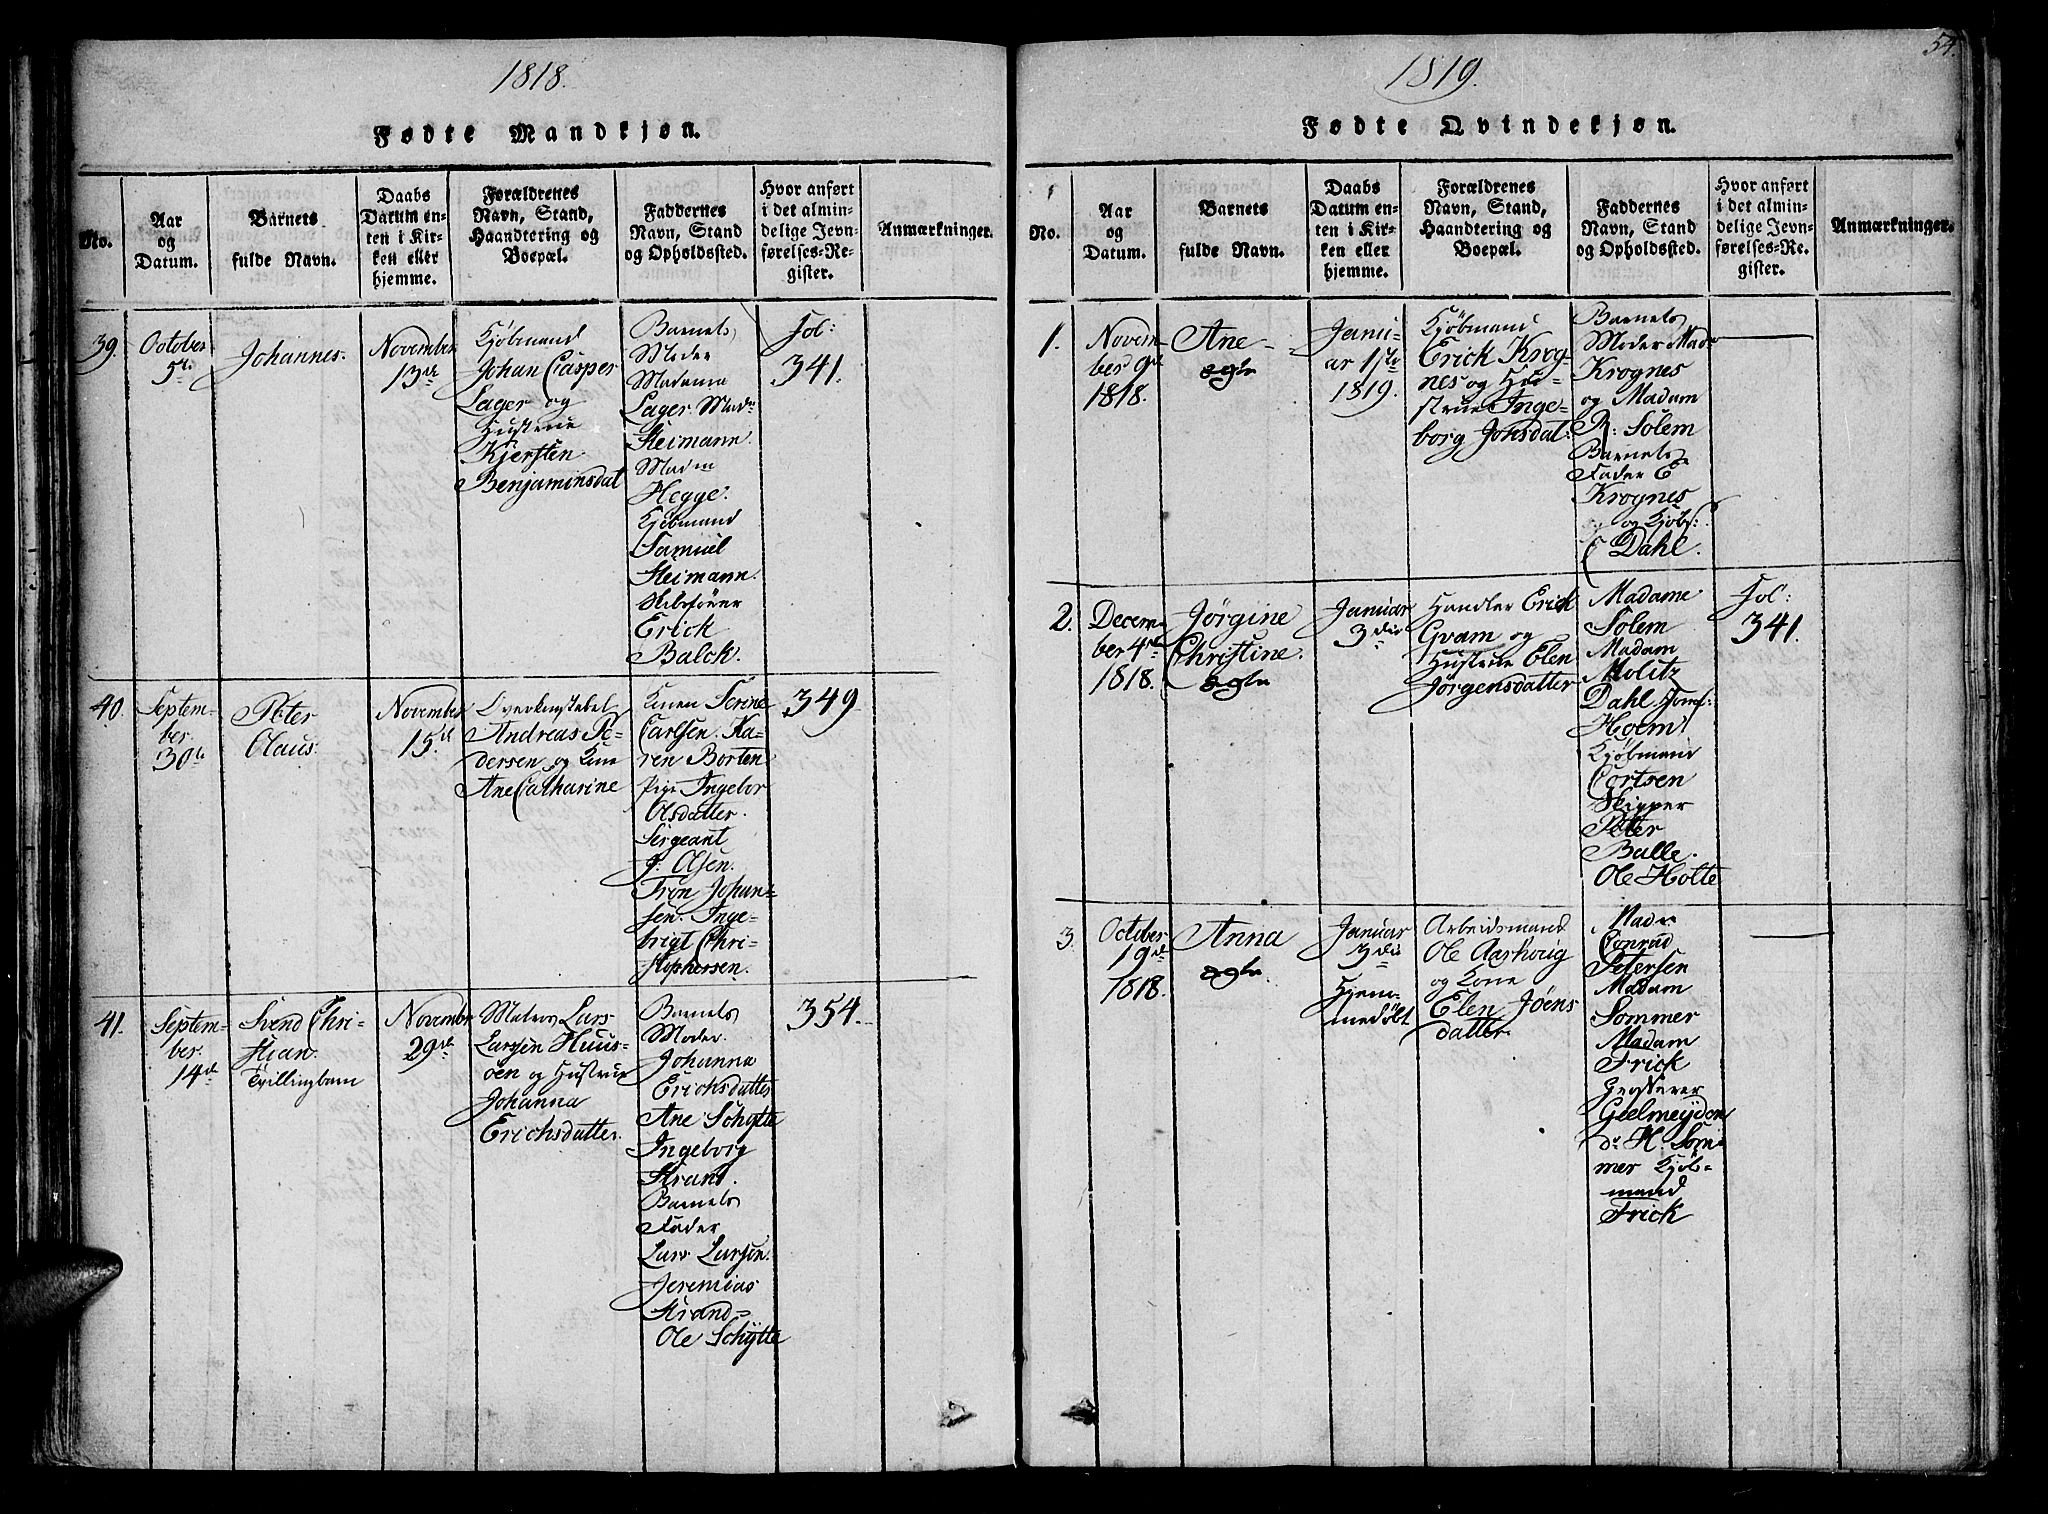 1818.
Fødte Mandkjøn.
No.
Aar
og
Datum.
Barnets
fulde Navn.
Daabs
Datum en-
ten i Kir-
ken eller
hjemme.
Forældrenes
Navn, Stand,
Haandtering og
Boepæl.
Faddernes
Navn, Stand
og Opholdssted.
Hvor anført
i det almin-
delige Jevn-
førelses-Re-
gister.
Anmærkninger.
39.
October
5te
Johannes.
November
13de
Kjøbmand
Johan Casper
Lager og
Hustrue
Kjersten
Benjaminsdat
Barnets
Moder
Madama
Lager Madm
Heimann.
Madm
Hegge.
Kjøbmand
Samuel
Heimann.
Skibsfører
Erick
Balck.
Fol:
341.
40.
Septem-
ber.
30te
Peter
Claus.
November
15de
Overkonstabel
Andreas Pe-
dersen og Kone
Ane Catharine
Konen Serine
Carlsen. Ka-
ren Borten
Pige Ingebor
Olsdatter.
Sergeant
J: Olsen.
Tron Johan-
sen. Inge-
brigt Chri-
stophersen.
349
41.
Septem-
ber.
14de
Svend Chri-
stian.
Tvillingbarn
November
29de
Matros Lars
Larsen Huus-
øen og Hustrue
Johanna
Erichsdatter.
Barnets
Moder.
Johanna
Erichsdatter
Ane Schytte
Ingeborg
Strand.
Barnets
Fader
Lars Larsen.
Jeremias
Strand-
Ole Schytte
354.
54.
1819.
Fødte Qvindekjøn.
No.
Aar
og
Datum.
Barnets
fulde Navn.
Daabs
Datum en-
ten i Kir-
ken eller
hjemme.
Forældrenes
Navn, Stand,
Haandtering og
Boepæl.
Faddernes
Navn, Stand
og Opholdssted.
Hvor anført
i det almin-
delige Jevn-
førelses-Re-
gister.
Anmærkninger.
1.
Novem-
ber 9de
1818.
Ane
ægte
Janu-
ar 1ste
1819.
Kjøbmand
Erick Krog-
nes og Hu-
strue Inge-
borg Jonsdat:
Barnets
Moder Madm
Krognes
og Madam
R: Solem
Barnets
Fader E
Krognes
og Kjøb:
Dahl.
2.
Decem-
ber 4de
1818.
Jørgine
Christine.
ægte
Januar
3die
Handler Erick
Gvam og
Hustrue Elen
Jørgensdatter
Madame
Solem
Madam
Molitz
Dahl. Jomf:
Holm
Kjøbmand
Cortsen
Skipper
Peter
Balle.
Ole Holte
Fol:
341.
3.
October
19de
1818.
Anna
ægte.
Januar
3die
Hjem-
medøbt
Arbeidsmand
Ole Aarhoug
og Kone
Elen Jøens
datter.
Madm
Conrad
Petersen
Madam
Sommer
Madam
Frick
Grosserer
Geelmeyden
do H. Som-
mer Kjøb-
mand
Frick